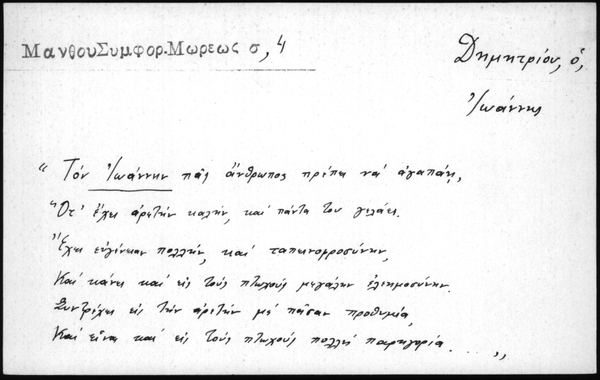 ΜανθουΣυμφορ.Μωρεως σ, 4
Δημητρίου, ὁ,
Ἰωάννης
“ Τόν Ἰωάννην πᾶς ἄνθρωπος πρέπει νά ἀγαπάῃ,
Ὁτ' ἔχει ἀρετήν καλήν, καί πάντα του γελάει.
Ἔχει εὐγένειαν πολλήν, καί ταπεινοφροσύνην,
Καί κάνει καί εἰς τούς πτωχούς μεγάλην ἐλεημοσύνην.
Συντρέχει εἰς τήν ἀρετήν μέ πᾶσαν προθυμία,
Καί εἶναι καί εἰς τούς πτωχούς πολλή παρηγορία . . . . ,,